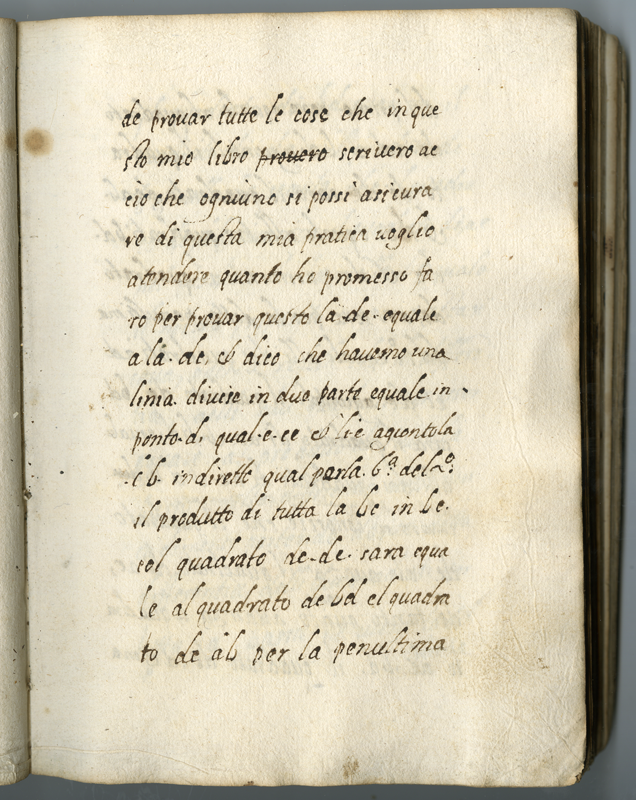 de prouar tutte le cose che in que
sto mio libro prouero scriuero ac
cio che ogniuno si possi asicura
re di questa mia pratica uoglio
atendere quanto ho promesso fa
ro per prouar questo la .de. equale
a la .de. & dico che hauemo una
linia diuise in due parte equale in
ponto .d. qual .e. ce & li è agiontola
.c b. in diretto qual per la 6.ª del 2.º
il produtto di tutta la be in bc.
col quadrato de .de. sara equa
le al quadrato de bd el quadra
to de ab per la penultima